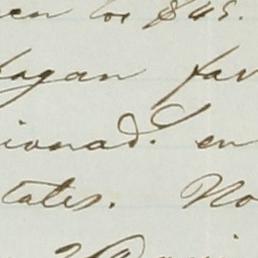 en los $45.
hagan fav
ionad. en
tates. No